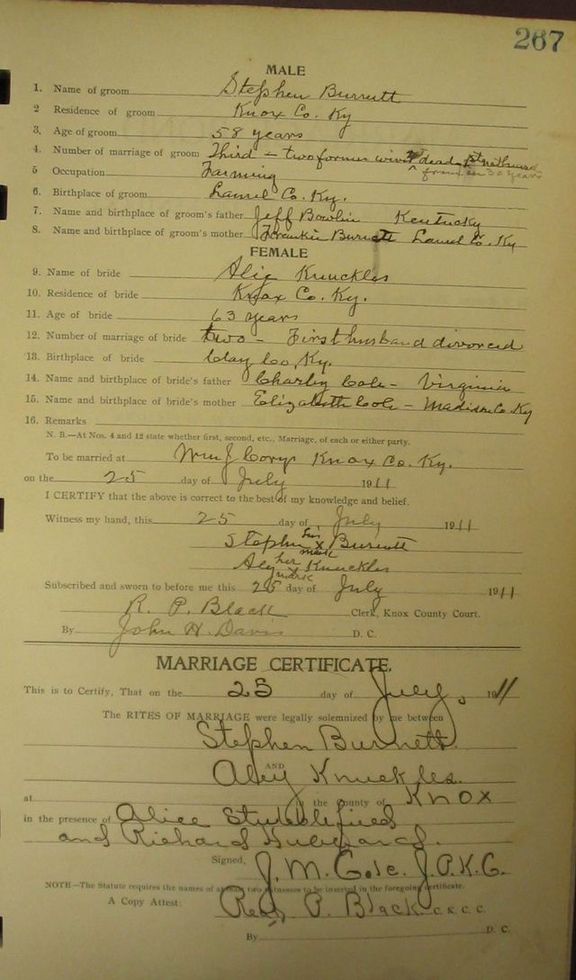 267
MALE
1. Name of groom Stephen Burnett
2 Residence of groom Knox Co. Ky
3. Age of groom 58 years
4. Number of marriage of groom Third - two former wives dead
5 Occupation Farming
6. Birthplace of groom Laurel Co. Ky.
7. Name and birthplace of groom's father Jeff Bowlin Kentucky
8. Name and birthplace of groom's mother Frankie Burnett Laurel Co. Ky
FEMALE
9. Name of bride Knuckles
10. Residence of bride Knox Co. Ky.
11. Age of bride 63 years
12. Number of marriage of bride two - First husband divorced
13. Birthplace of bride Clay Co, Ky.
14. Name and birthplace of bride's father Charley Cole - Virginia
15. Name and birthplace of bride's mother Elizabeth Cole - Madison Co Ky
16. Remarks
N. B.—At Nos. 4 and 12 state whether first, second, etc., Marriage, of each or either party.
To be married at Wm J Knox Co. Ky.
on the 25 day of July 1911
I CERTIFY that the above is correct to the best of my knowledge and belief.
Witness my hand, this 25 day of July 1911
Stephen his x mark Burnett
Aley her mark Knuckles
Subscribed and sworn to before me this 25 day of July 1911
R. P. Black Clerk, Knox County Court.
By John H. Davis D. C.
MARRIAGE CERTIFICATE.
This is to Certify, That on the 25 day of July, 1911
The RITES OF MARRIAGE were legally solemnized by me between
Stephen Burnett
AND
Aley Knuckles
at the county of Knox
in the presence of Alice Stubblefield
and Richard
Signed, J. M. Cole. J.P.K.C.
NOTE—The Statute requires the names of at least two witnesses to be inserted in the foregoing certificate.
A Copy Attest: P. Black C. K. C. C.
By D. C.